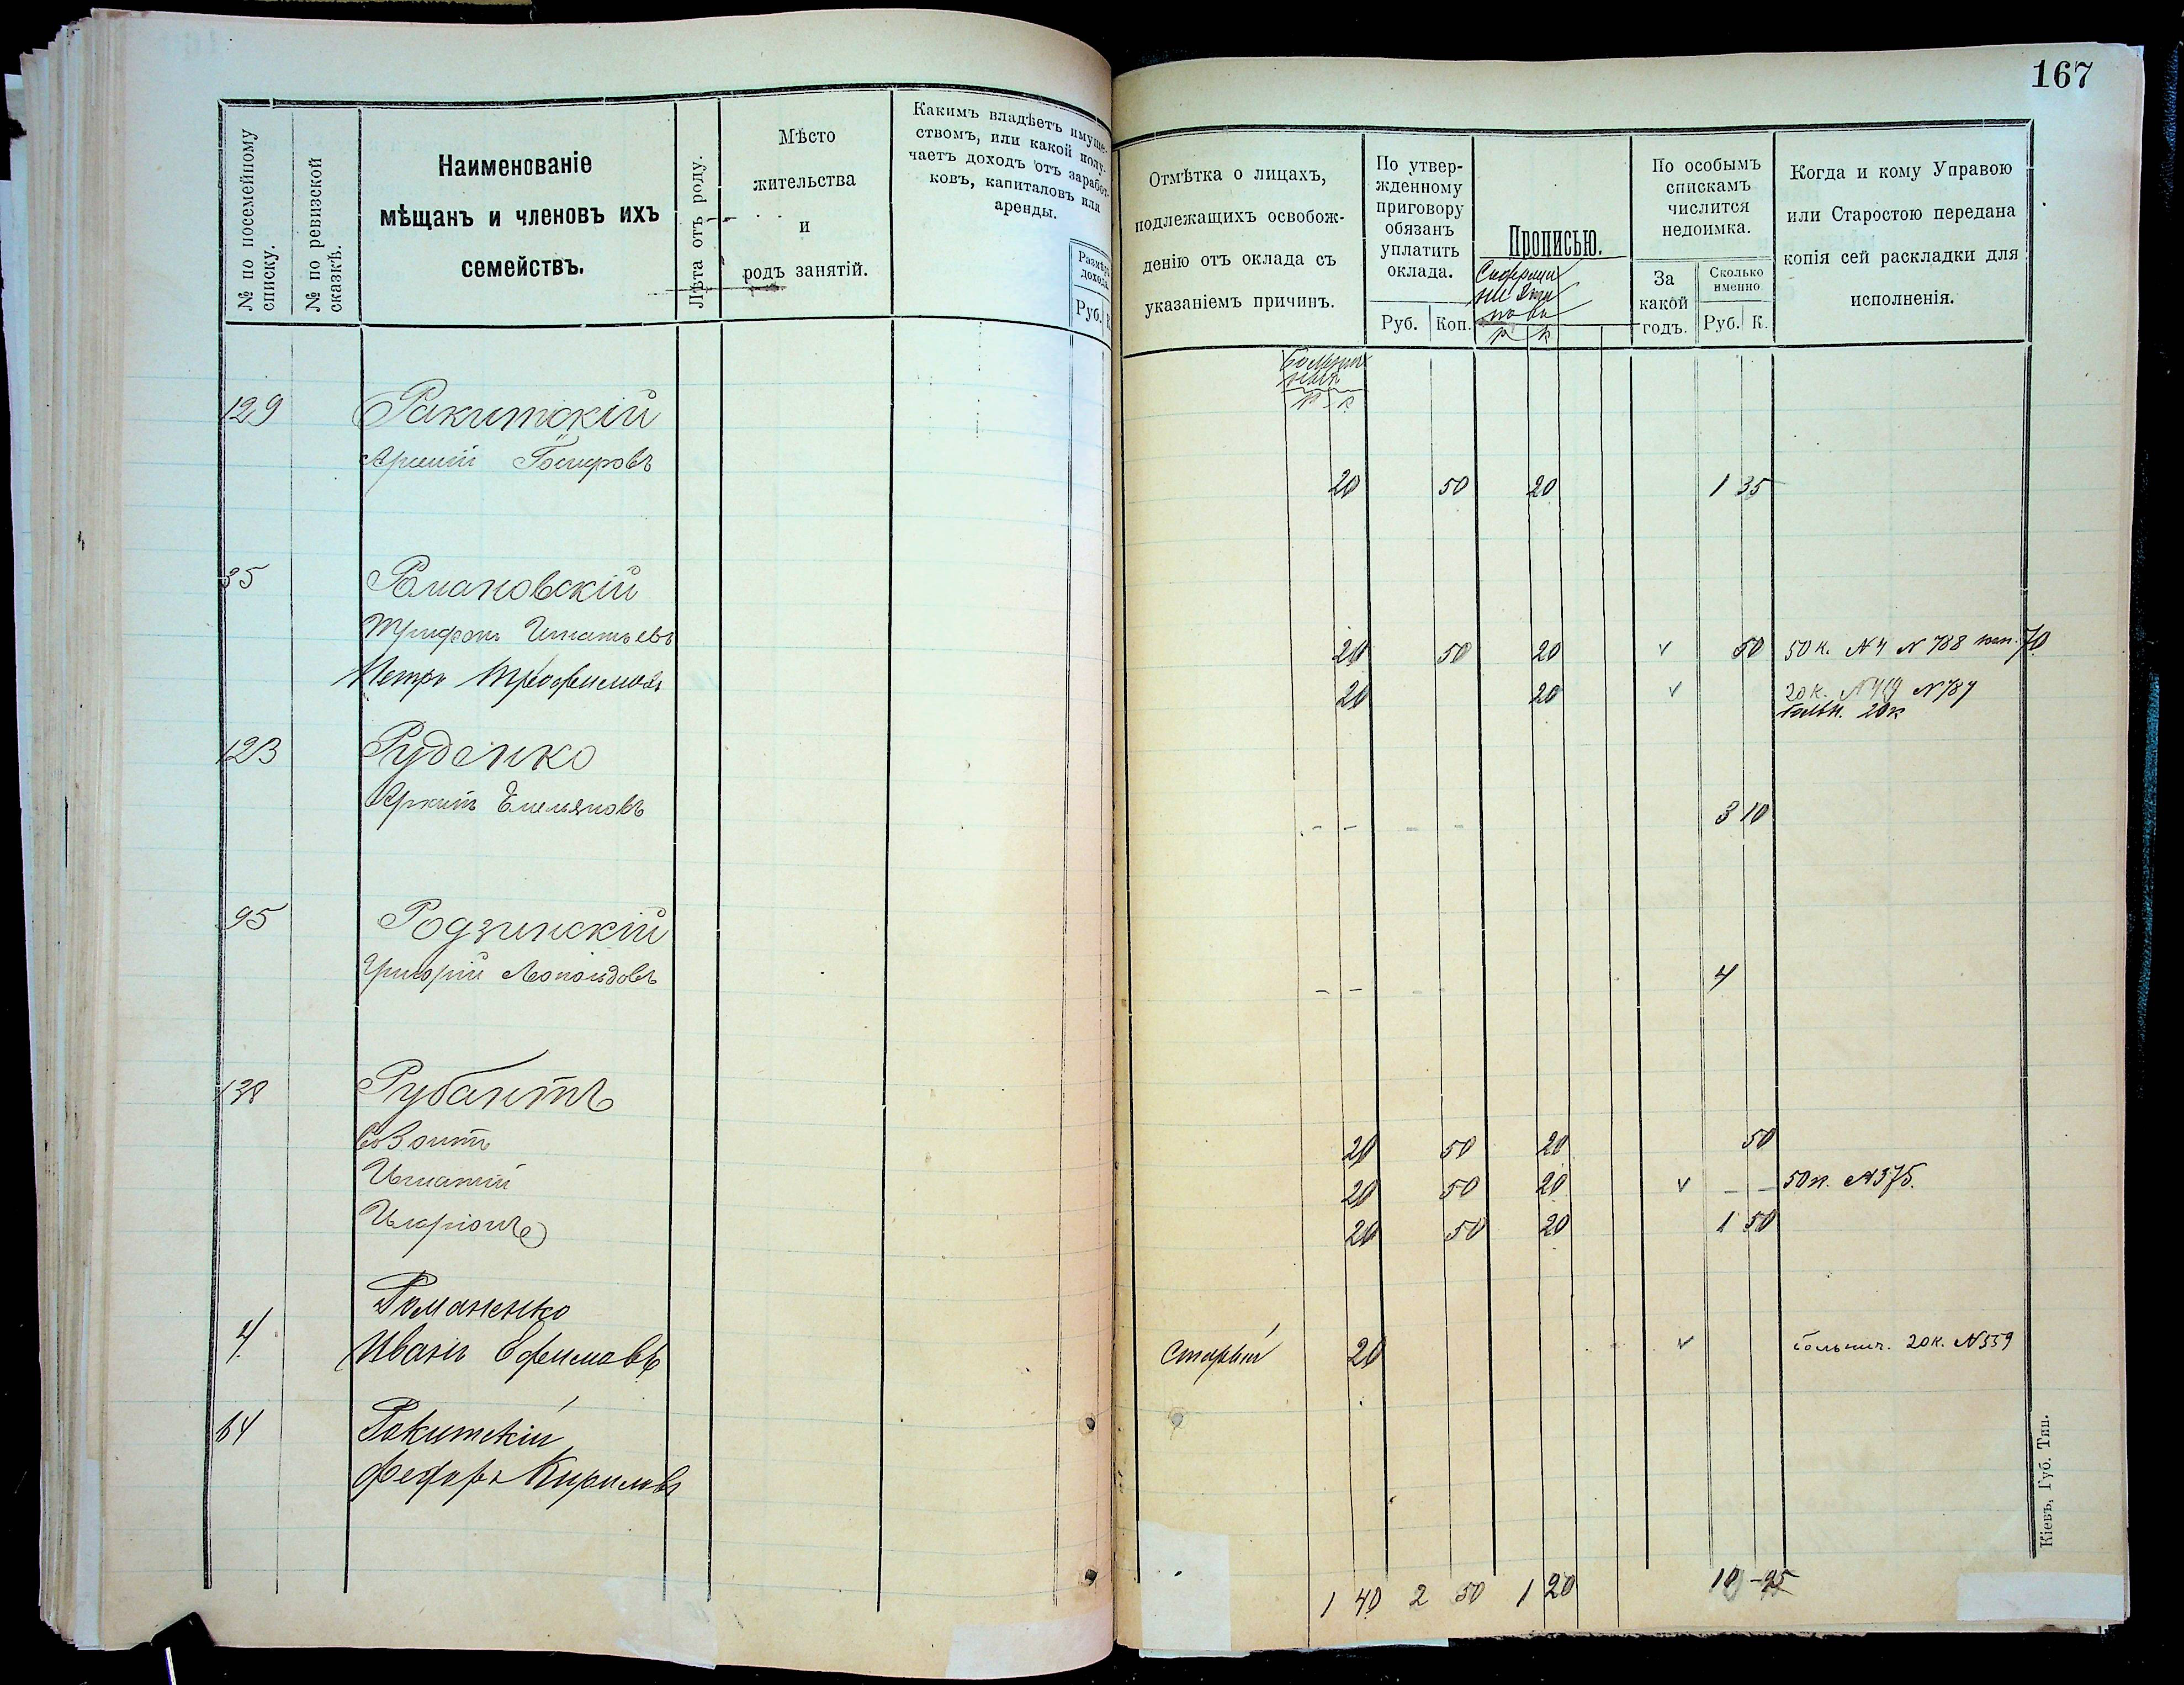 167
№ по посемейному
списку.
№ по ревизской
сказкѣ.
Наименованіе
мѣщанъ и членовъ ихъ
семействъ.
Лѣта отъ роду.
Мѣсто
жительства
и
родъ занятій.
Какимъ владѣетъ имуще-
ствомъ, или какой полу-
чаетъ доходъ отъ заработ-
ковъ, капиталовъ или
аренды.
Размѣръ
дохода.
Руб. К
Отмѣтка о лицахъ,
подлежащихъ освобож-
денію отъ оклада съ
указаніемъ причинъ.
По утвер-
жденному
приговору
обязанъ
уплатить
оклада.
Руб. Коп.
Прописью.
р к
По особымъ
спискамъ
числится
недоимка.
За
какой
годъ.
Сколько
именно
Руб. К.
Когда и кому Управою
или Старостою передана
копія сей раскладки для
исполненія.
р к
129 Ракитскій
20 50 20 1 35
35 Романовскій
Трифонъ Игнатьевъ 20 50 20 v 50 50 к. № 788 70
Петръ Трофимовъ 20 20 v 20 к. № 419 № 789
больн. 20 к
123 Руденко
Емельяновъ - - - - 3 10
95 Родзинскій
Григорій Леопольдовъ - - - - 4
138 Рубантъ
20 50 20 50
Игнатій 20 50 20 v - - 50 к. № 375.
Иларіонъ 20 50 20 1 50
Романенко
4 Иванъ Ефимовъ Старый 20 v больнич. 20 к. № 559
64 Ракитскій
Федоръ Кириловъ
1 40 2 50 1 20 10 - 95
Кіевъ, Губ. Тип.